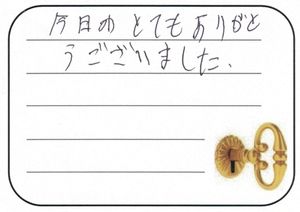 今日わ とてもありがと
うございました、